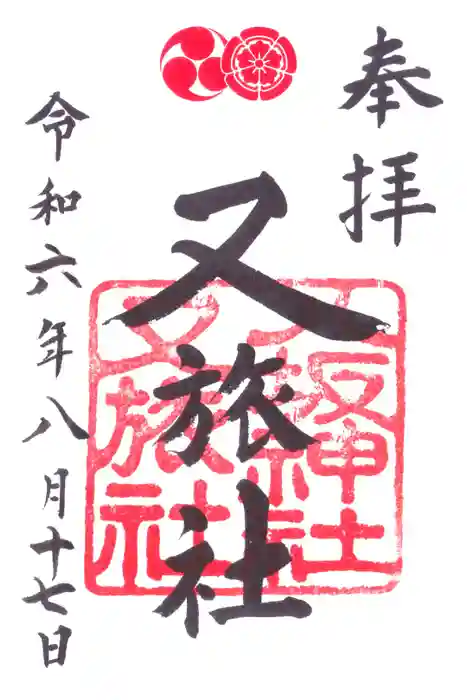 奉拝
又旅社
八坂神社
又旅社
令和六年八月十七日